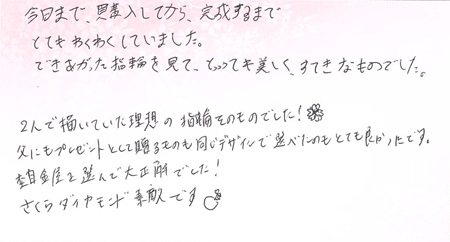 今日まで、購入してから、完成するまで
とてもわくわくしていました。
できあがった指輪を見て、とっても美しく、すてきなものでした。
2人で描いていた理想の指輪そのものでした!
父にもプレゼントとして贈るものも同じデザインで選べたのもとても良かったです。
杢目金屋を選んで大正解でした!
さくらダイヤモンド素敵です